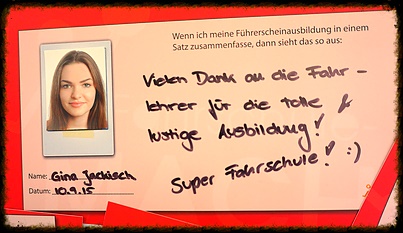 Wenn ich meine Führerscheinausbildung in einem
Satz zusammenfasse, dann sieht das so aus:
Vielen Dank an die Fahr-
lehrer für die tolle &
lustige Ausbildung!
Super Fahrschule! :)
Name: Gina Jackisch
Datum: 10.9.15